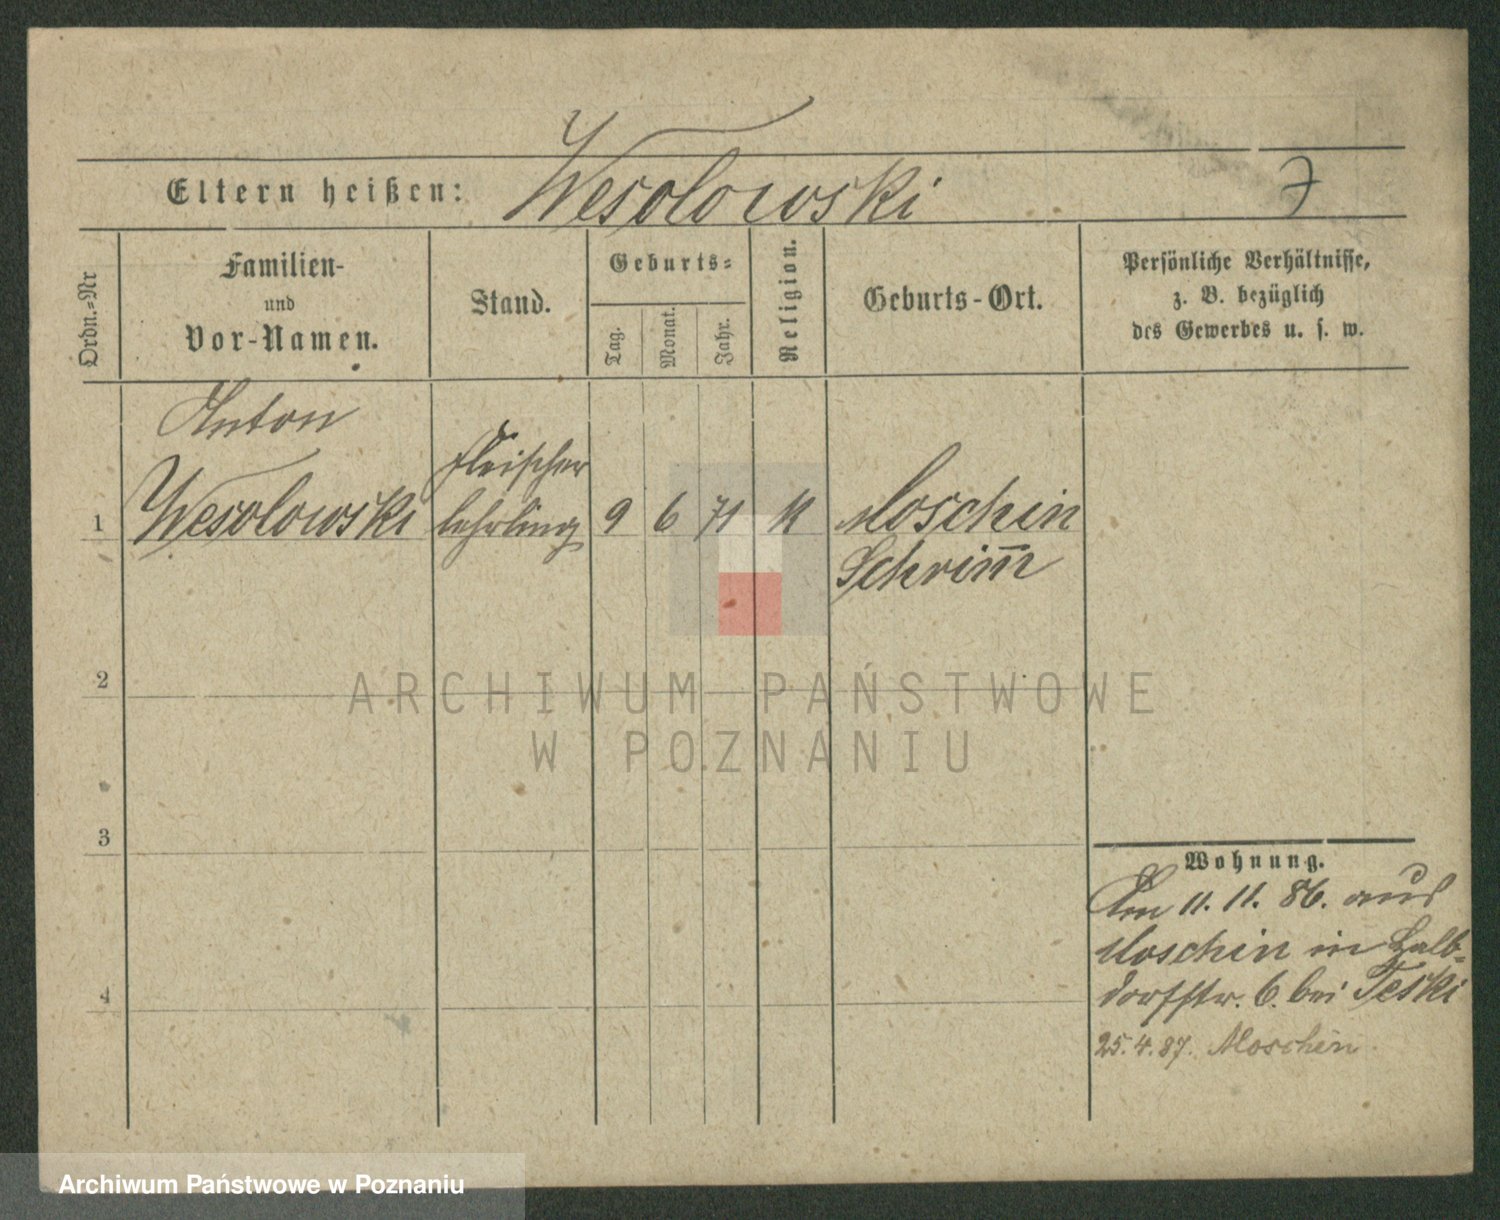 Eltern heißen: Wesolowski 7
Ordn.-Nr
Familien-
und
Vor-Namen.
Stand.
Geburts-
Tag. Monat. Jahr.
Religion.
Geburts-Ort.
Persönliche Verhältnisse,
z. B. bezüglich
des Gewerbes u. s. w.
Anton
1 Wesolowski
Fleischer
lehrling
9 6 71 k
Moschin
Schrim̅
2
3
4
Wohnung.
Am 11. 11. 86. aus
Moschin in Halb-
dorfstr. 6. bei Teski
25. 4. 87. Moschin.
ARCHIWUM PAŃSTWOWE
W POZNANIU
Archiwum Państwowe w Poznaniu